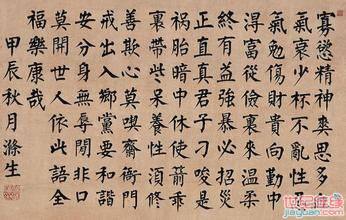 寡慾精神爽思多血
氣衰少杯不亂性忍
氣勉傷財貴向勤中
得富從儉裏來温柔
終有益強暴必招災
正直真君子刁唆是
祸胎暗中休使箭乖
裏帶些呆養性須修
善欺心莫喫齋衙門
戒出入鄉黨要和諧
安分身無辱閒非口
莫開世人依此語全
福樂康哉
甲辰秋月滌生
世纪佳缘
jiayuan.com